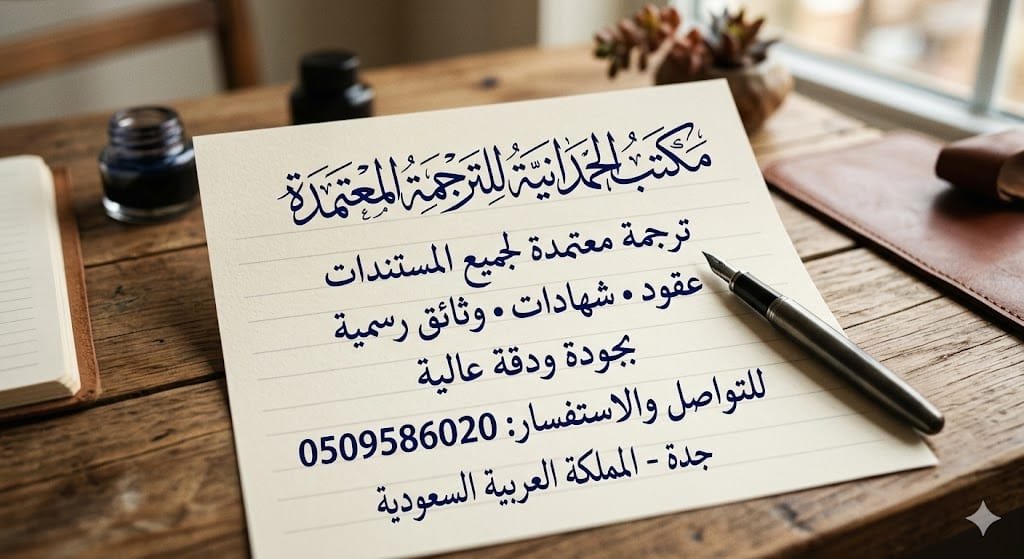 مَكْتَبُ الْحَمَدَانِيَّةُ لِلتَّرْجَمَةِ الْمُعْتَمَدَةِ
ترجمة معتمدة لجميع المستندات
عقود • شهادات • وثائق رسمية
بجودة ودقة عالية
للتواصل والاستفسار: 0509586020
جدة - المملكة العربية السعودية